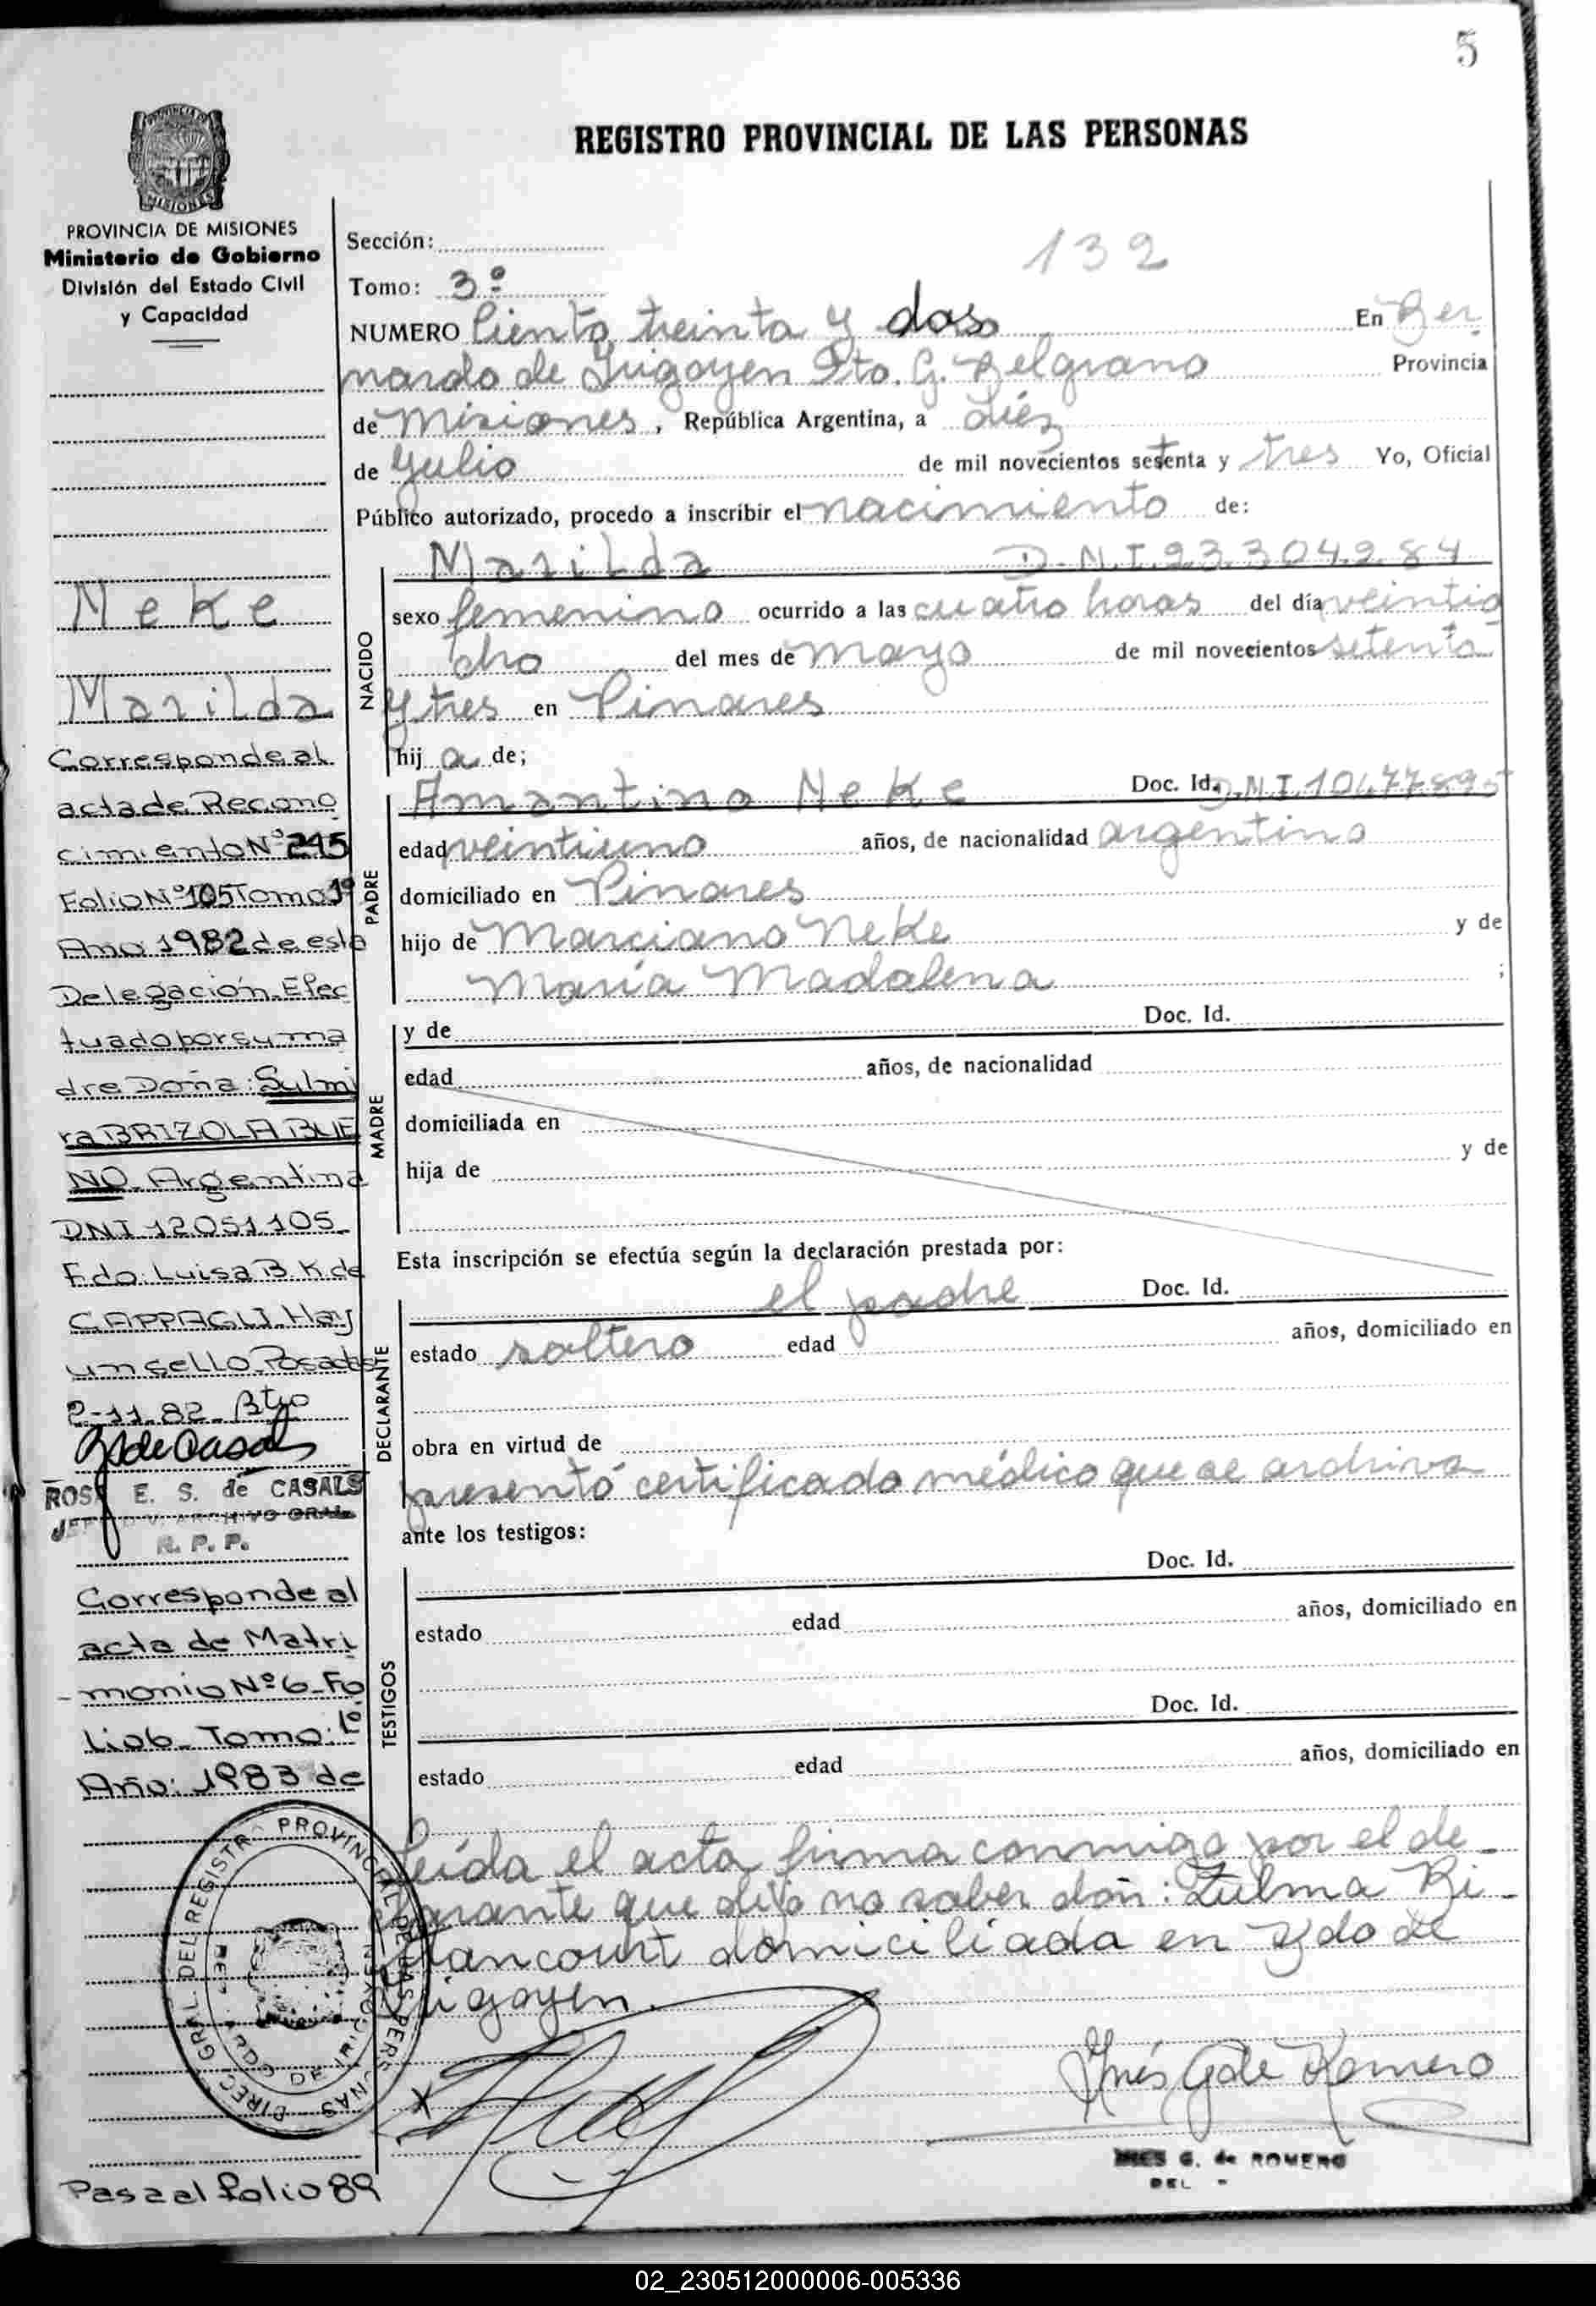 5
REGISTRO PROVINCIAL DE LAS PERSONAS
PROVINCIA DE MISIONES
Ministerio de Gobierno
División del Estado Civil
y Capacidad
Sección:
132
Tomo: 3º
NUMERO Ciento treinta y dos En Ber
nardo de Irigoyen Dto. G. Belgrano Provincia
de Misiones, República Argentina, a diéz
de Julio de mil novecientos setenta y tres Yo, Oficial
Público autorizado, procedo a inscribir el nacimiento de:
Marilda D.N.I. 23.304.284
NACIDO
sexo femenino ocurrido a las cuatro horas del día veintio
cho del mes de mayo de mil novecientos setenta
y tres en Pinares
hij a de;
PADRE
Amantino Neke Doc. Id. D.N.I. 10.477.895
edad veintiuno años, de nacionalidad argentino
domiciliado en Pinares
hijo de Marciano Neke y de
María Madalena ;
MADRE
y de Doc. Id.
edad años, de nacionalidad
domiciliada en
hija de y de
Esta inscripción se efectúa según la declaración prestada por:
DECLARANTE
el padre Doc. Id.
estado soltero edad años, domiciliado en
obra en virtud de
presentó certificado médico que se archiva
ante los testigos:
TESTIGOS
Doc. Id.
estado edad años, domiciliado en
Doc. Id.
estado edad años, domiciliado en
Leída el acta firma conmigo por el de
clarante que dijo no saber doñ: Zulma Bi
tancourt domiciliada en Bdo de
Irigoyen.
Inés G de Romero
INES G. de ROMERO
DEL
Neke
Marilda
Corresponde al
acta de Recono
cimiento Nº 245
Folio Nº 105 Tomo 1º
Año 1982 de esta
Delegación. Efec
tuado por su ma
dre Doña: Sulmi
ra BRIZOLA BUE
NO. Argentina
DNI 12.051.105.
Fdo. Luisa B. K de
CAPPAGLI. Hay
un sello. Posadas
2-11-82.
R S de Casals
ROSA E. S. de CASALS
JEFE DIV. ARCHIVO GRAL.
R. P. P.
Corresponde al
acta de Matri
monio Nº 6 - Fo
lio 6 - Tomo: 1º
Año: 1983 de
DIREC. GRAL. DEL REGISTRO PROVINCIAL DE LAS PERSONAS
BDO. DE IRIGOYEN
Pasa al folio 89
02_230512000006-005336